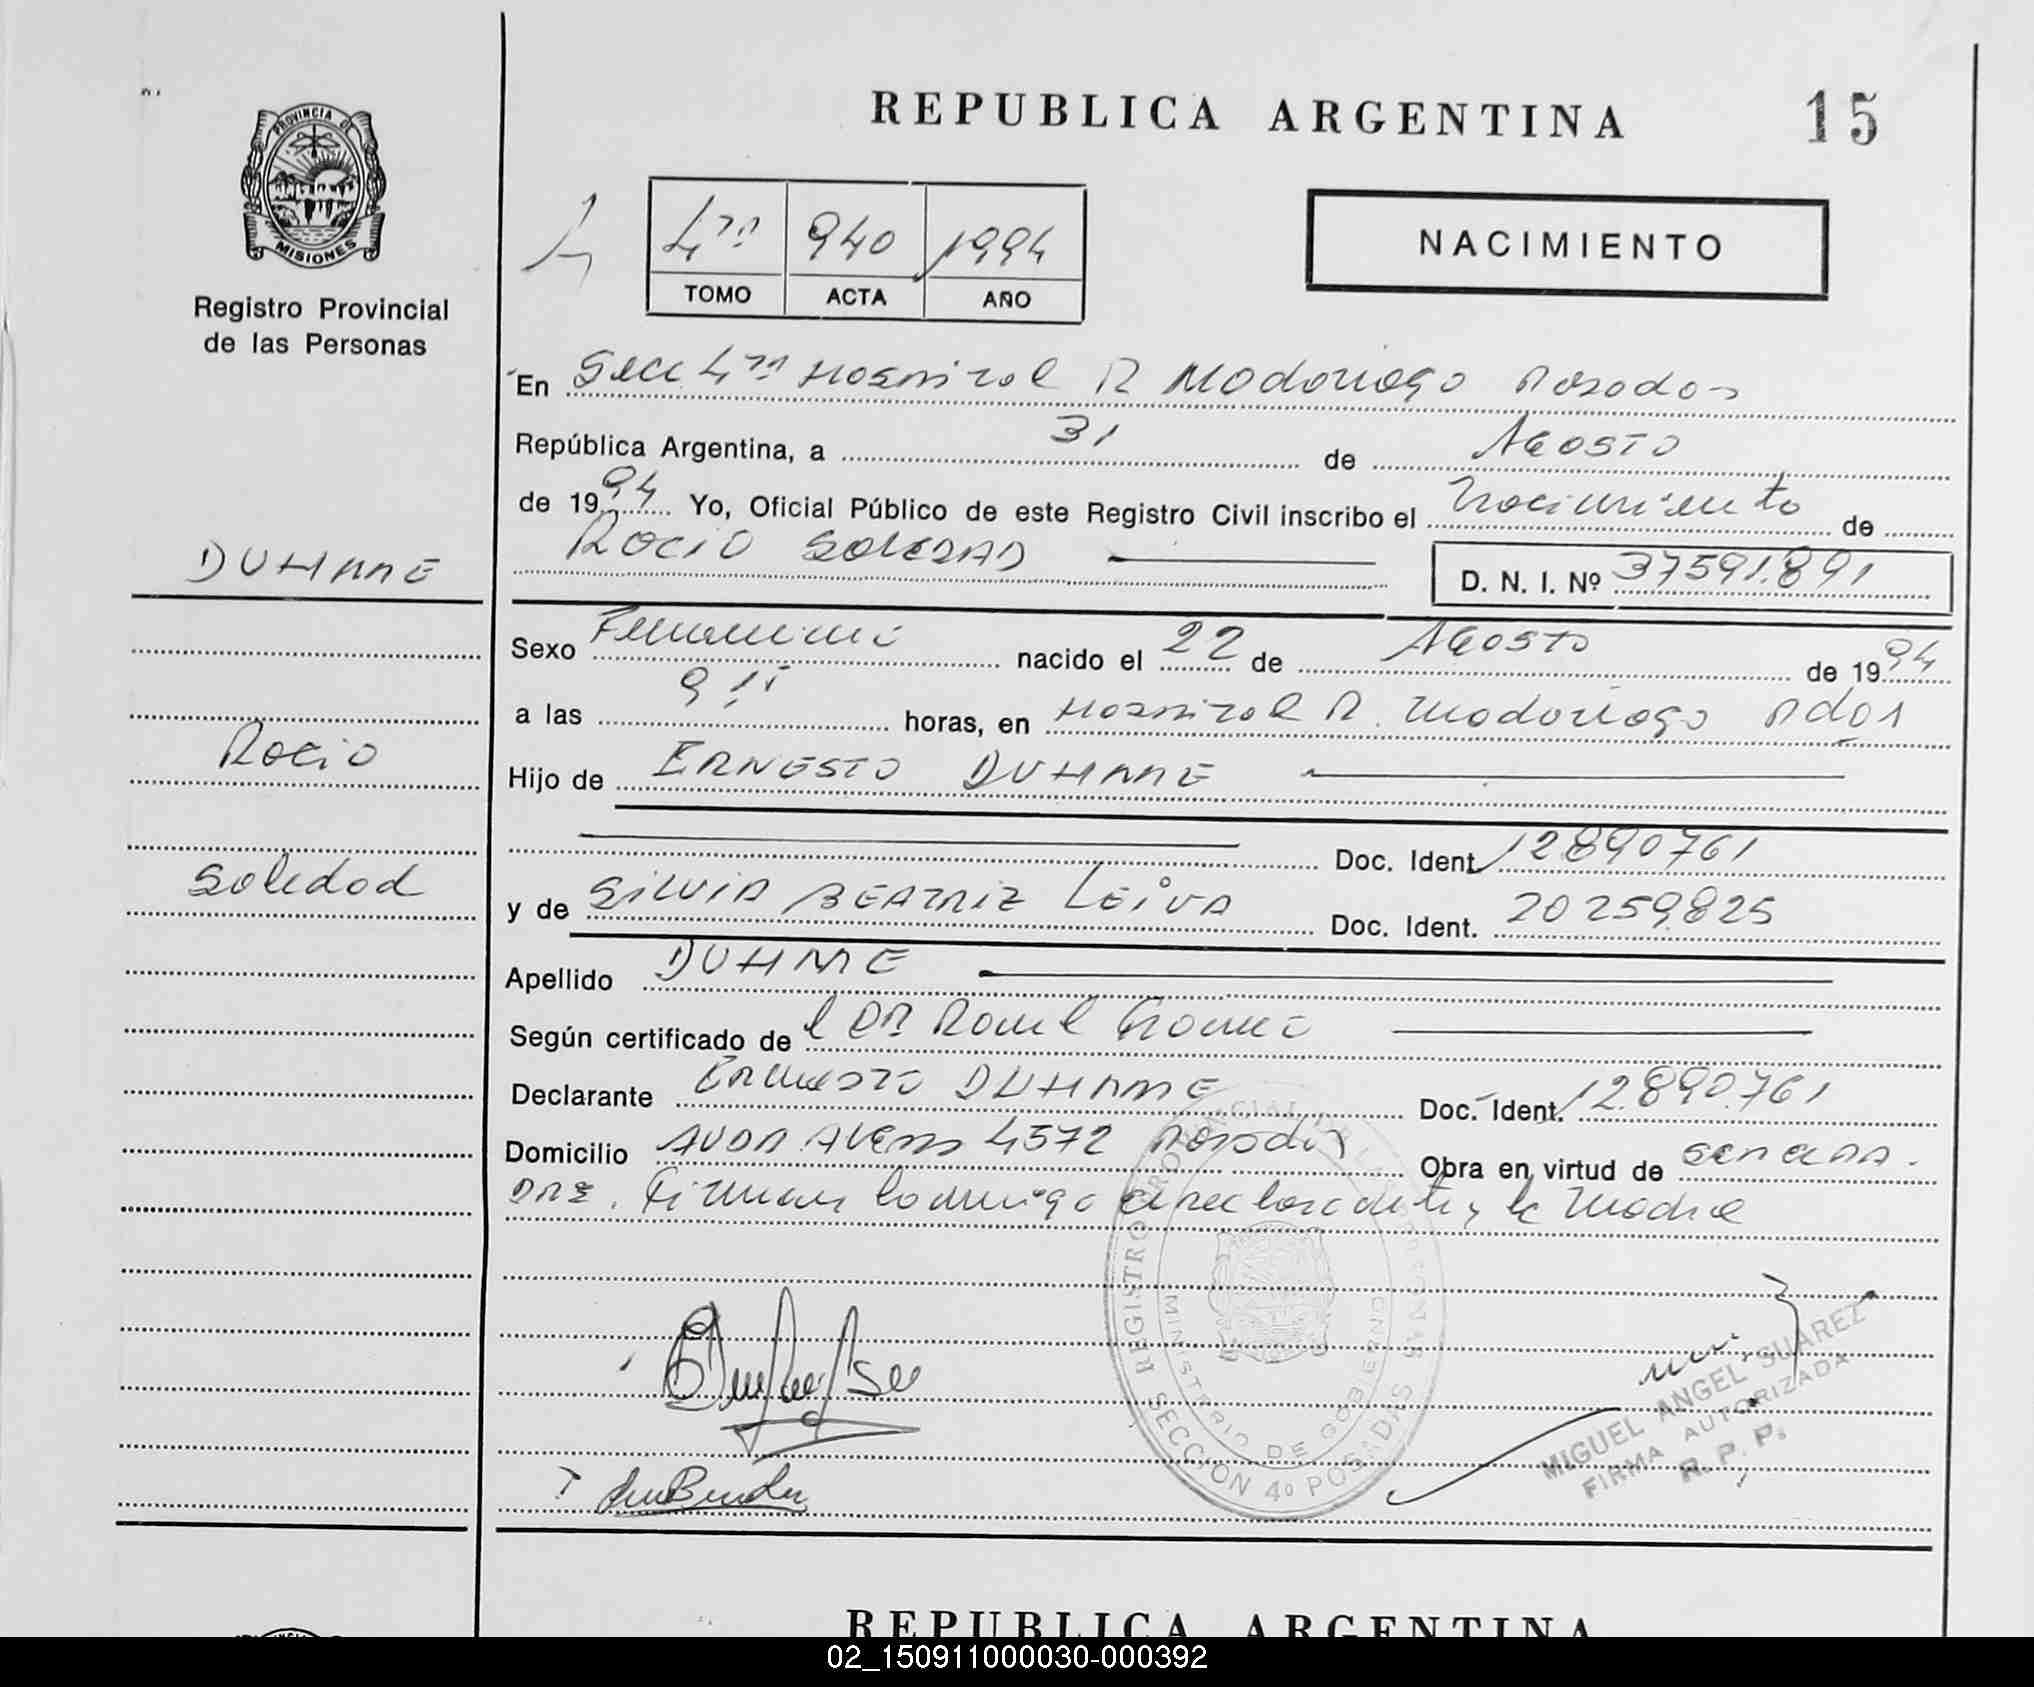 REPUBLICA ARGENTINA
15
PROVINCIA DE
MISIONES
Registro Provincial
de las Personas
4
4ta 940 1994
TOMO ACTA AÑO
NACIMIENTO
En Secc 4ta Hospital R Madariaga Posadas
República Argentina, a 31 de AGOSTO
de 1994 Yo, Oficial Público de este Registro Civil inscribo el Nacimiento de
ROCIO SOLEDAD D. N. I. Nº 37591.891
DUHNNE
Sexo Femenino nacido el 22 de AGOSTO de 1994
a las horas, en Hospital R. Madariaga Pdas
Rocio
Hijo de ERNESTO
Doc. Ident. 12890761
Soledad
y de SILVIA BEATRIZ LEIVA Doc. Ident. 20259825
Apellido
Según certificado de l DR Raul
Declarante Ernesto Doc. Ident. 12.890.761
Domicilio AVDA 4572 Posadas Obra en virtud de
Firman conmigo el declarante y la Madre
REGISTRO PROVINCIAL DE LAS PERSONAS
MINISTERIO DE GOBIERNO
SECCION 4º POSADAS
MIGUEL ANGEL SUAREZ
FIRMA AUTORIZADA
R. P. P.
REPUBLICA ARGENTINA
02_150911000030-000392